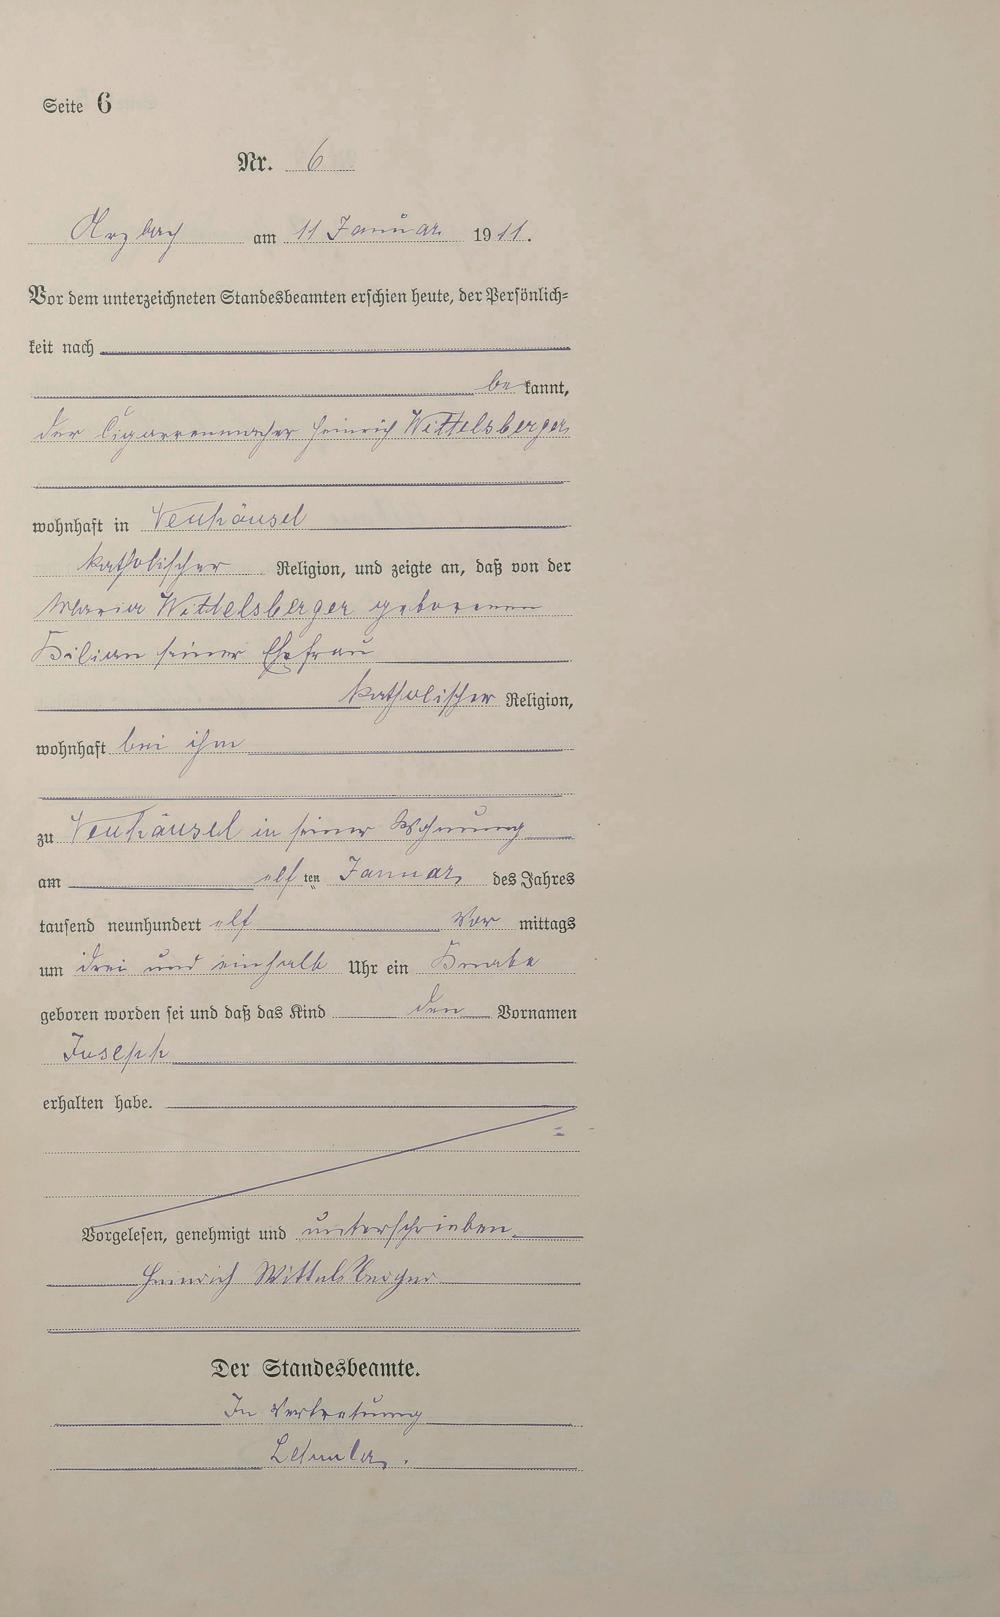 Seite 6
Nr. 6
Arzbach am 11 Januar 1911.
Vor dem unterzeichneten Standesbeamten erschien heute, der Persönlich-
keit nach
bekannt,
der Cigarrenmacher Heinrich Wittelsberger
wohnhaft in Neuhäusel
katholischer Religion, und zeigte an, daß von der
Maria Wittelsberger geborenen
Kilian seiner Ehefrau
katholischer Religion,
wohnhaft bei ihm
zu Neuhäusel in seiner Wohnung
am elf ten Januar des Jahres
tausend neunhundert elf Vor mittags
um drei und einhalb Uhr ein Knabe
geboren worden sei und daß das Kind den Vornamen
Joseph
erhalten habe.
Vorgelesen, genehmigt und unterschrieben
Heinrich Wittelsberger
Der Standesbeamte.
In Vertretung